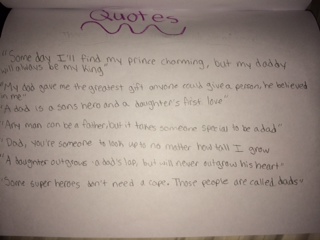 Quotes
"Some day I'll find my prince charming, but my daddy
will always be my king"
"My dad gave me the greatest gift anyone could give a person, he believed
in me"
"A dad is a sons hero and a daughter's first love"
"Any man can be a father, but it takes someone special to be a dad"
"Dad, you're someone to look up to no matter how tall I grow
"A daughter outgrows a dad's lap, but will never outgrow his heart"
"Some super heroes don't need a cape. Those people are called dads"